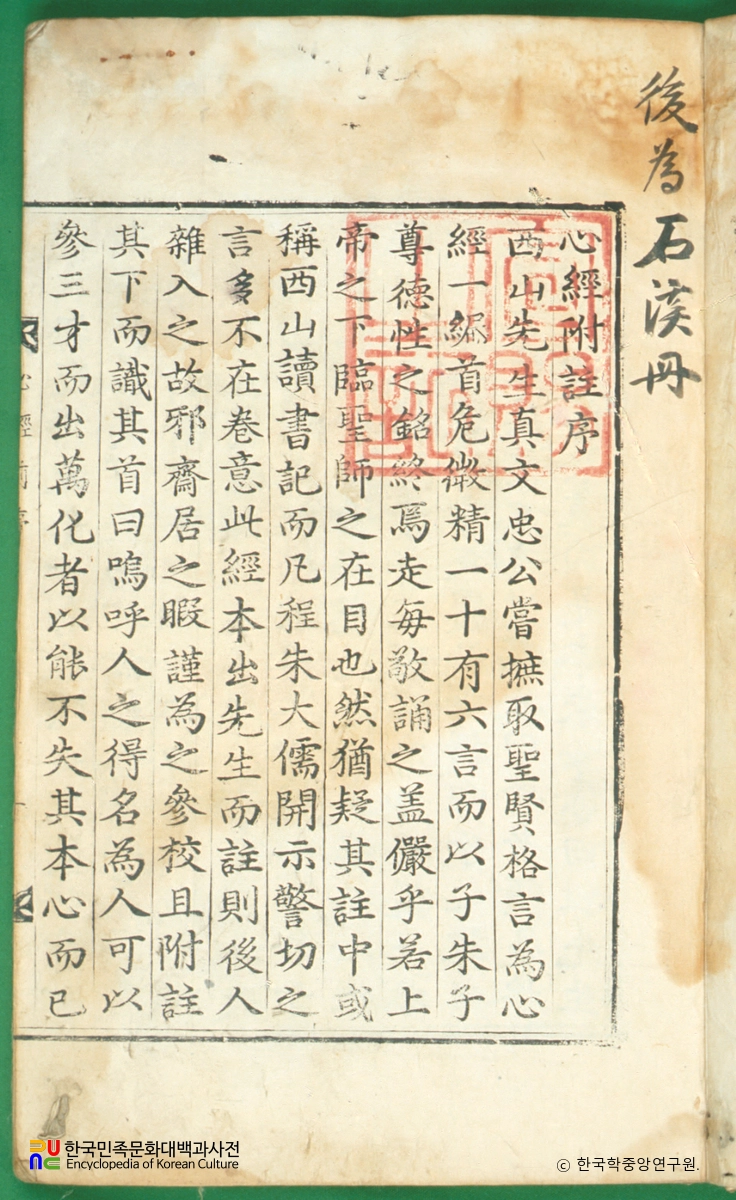 後為石溪册
心經附註序
西山先生真文忠公嘗摭取聖賢格言為心
經一編首危微精一十有六言而以子朱子
尊德性之銘終焉走每敬誦之盖儼乎若上
帝之下臨聖師之在目也然猶疑其註中或
稱西山讀書記而凡程朱大儒開示警切之
言多不在卷意此經本出先生而註則後人
雜入之故邪齋居之暇謹為之參校且附註
其下而識其首曰嗚呼人之得名為人可以
參三才而出萬化者以能不失其本心而已
한국민족문화대백과사전
Encyclopedia of Korean Culture
© 한국학중앙연구원.